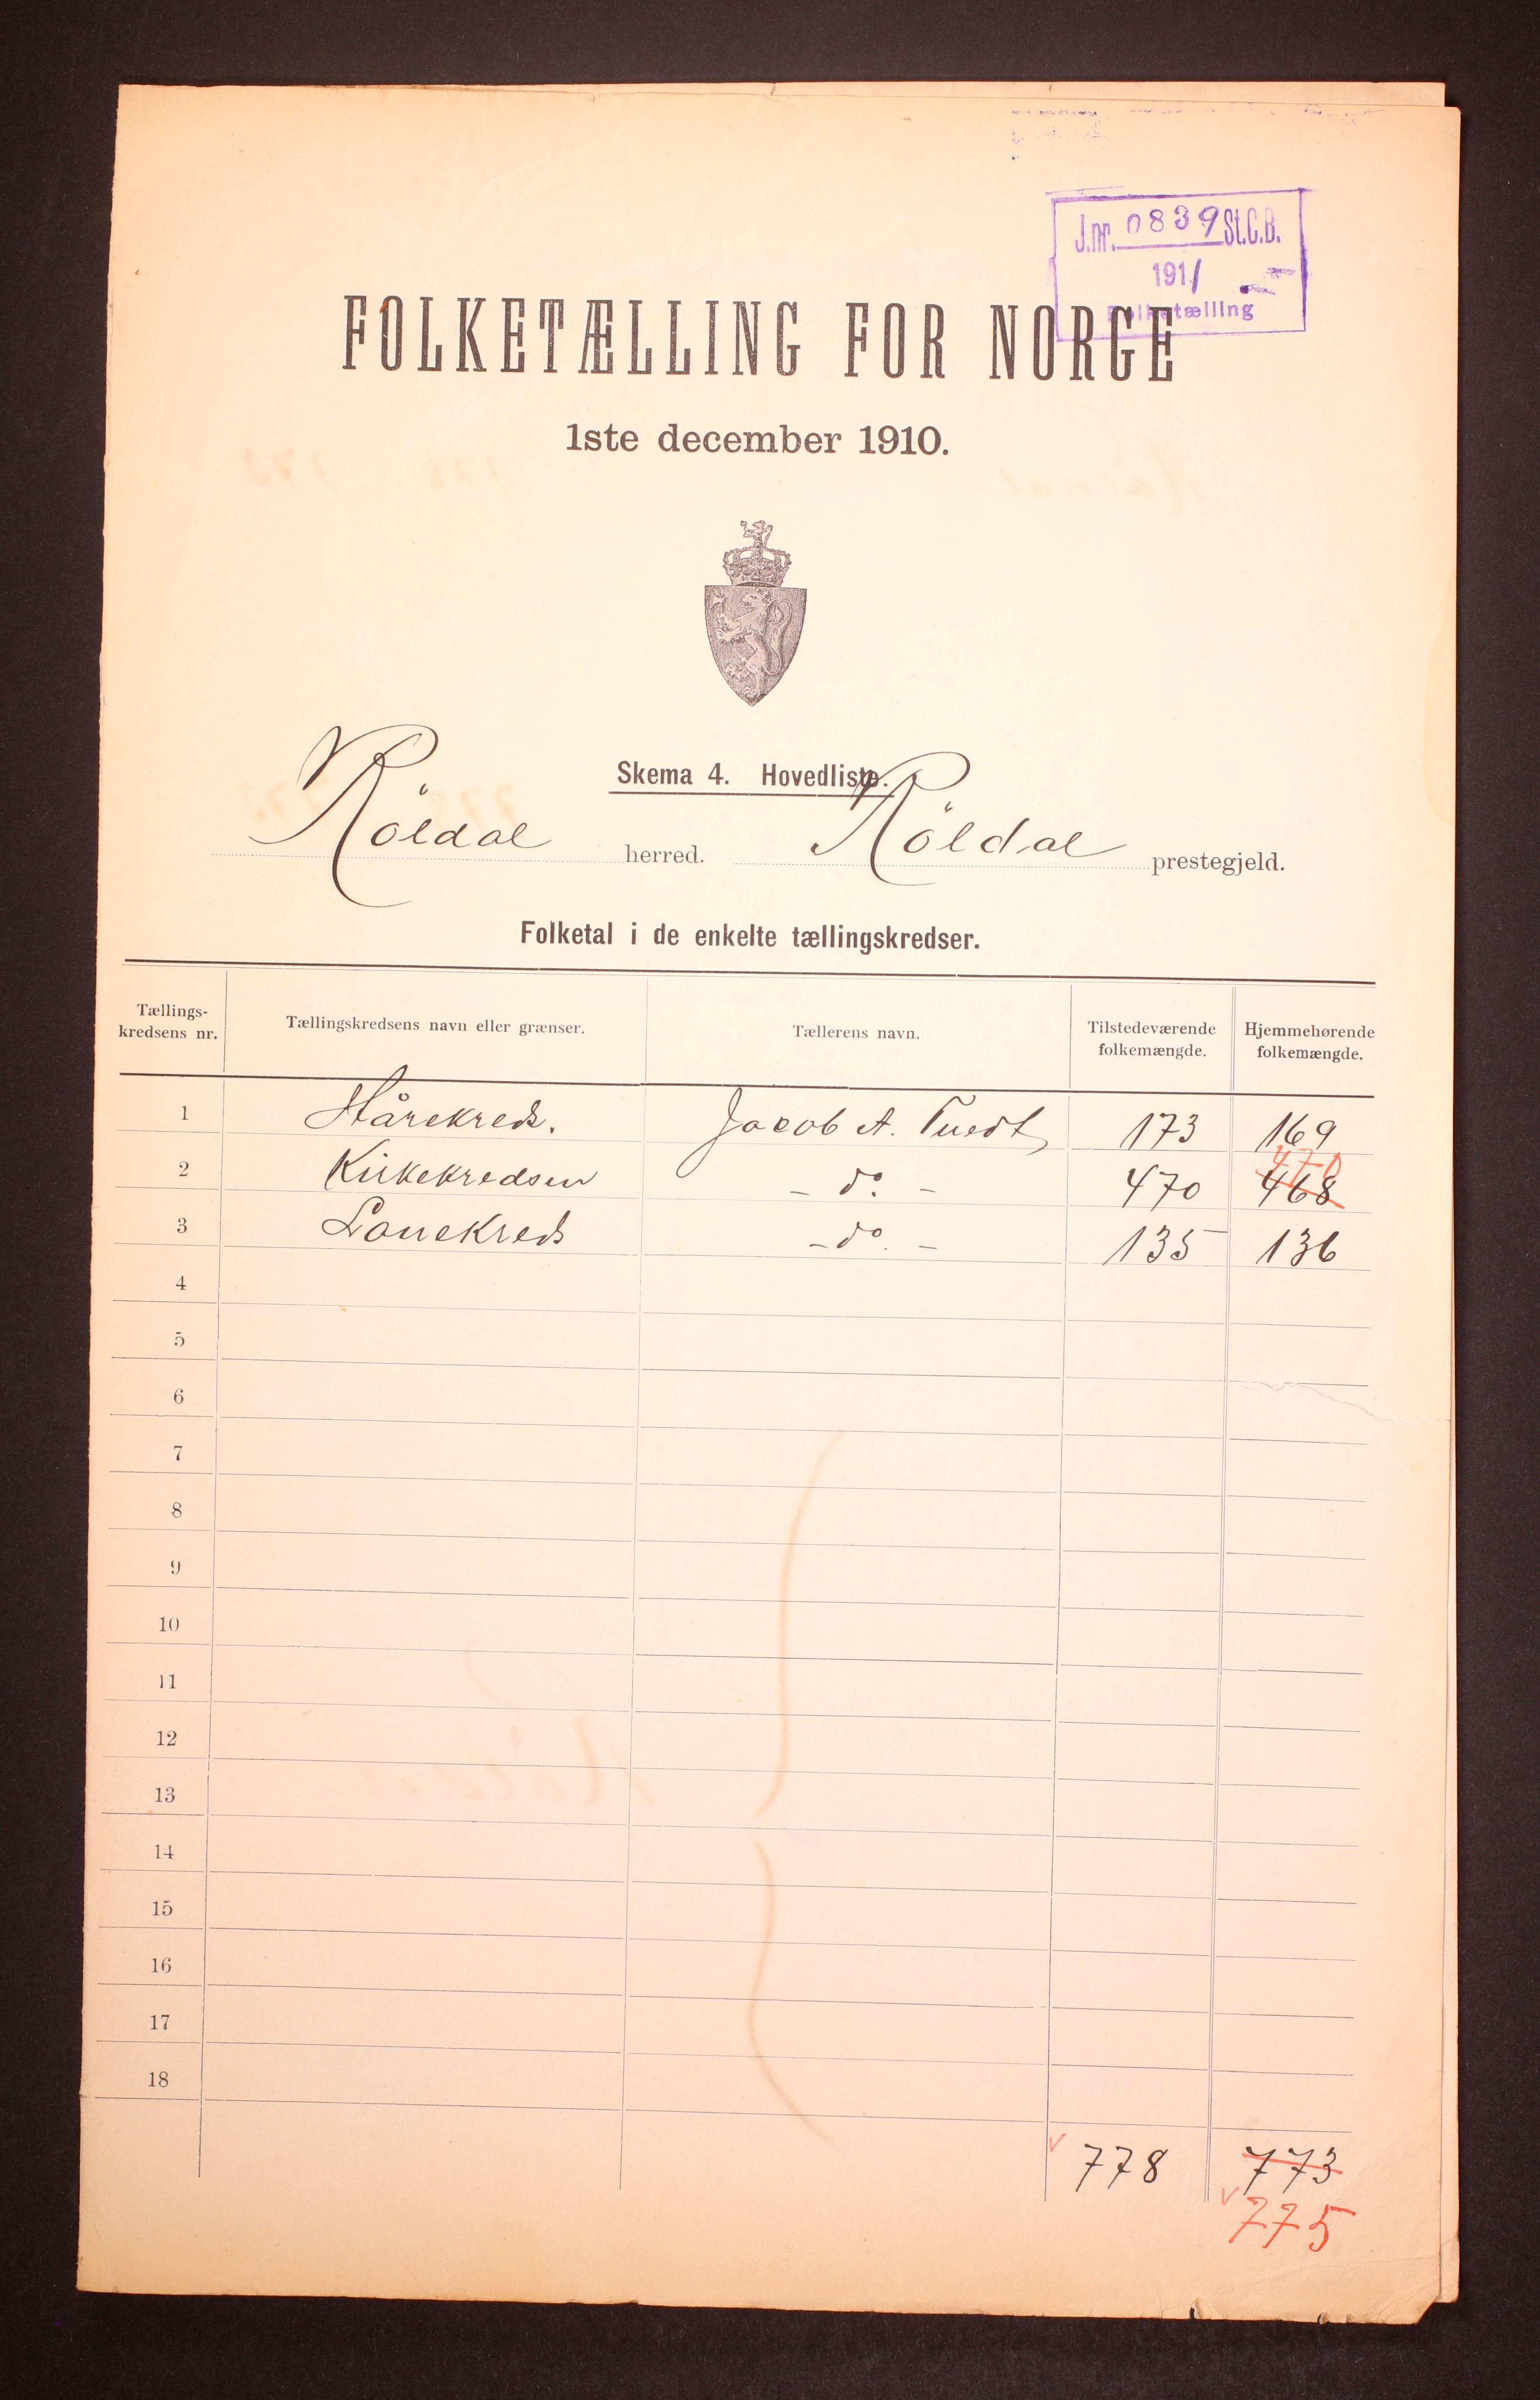 J.nr. 0839 St.C.B.
1911
Folketælling
FOLKETÆLLING FOR NORGE
1ste december 1910.
Skema 4. Hovedliste.
Röldal herred. Röldal prestegjeld.
Folketal i de enkelte tællingskredser.
Tællings-kredsens nr. Tællingskredsens navn eller grænser. Tællerens navn. Tilstedeværende folkemængde. Hjemmehørende folkemængde.
1 Hårekreds. Jacob A. 173 169
470
2 Kirkekredsen - do. - 470 468
3 - do. - 135 136
4
5
6
7
8
9
10
11
12
13
14
15
16
17
18
778 773
775